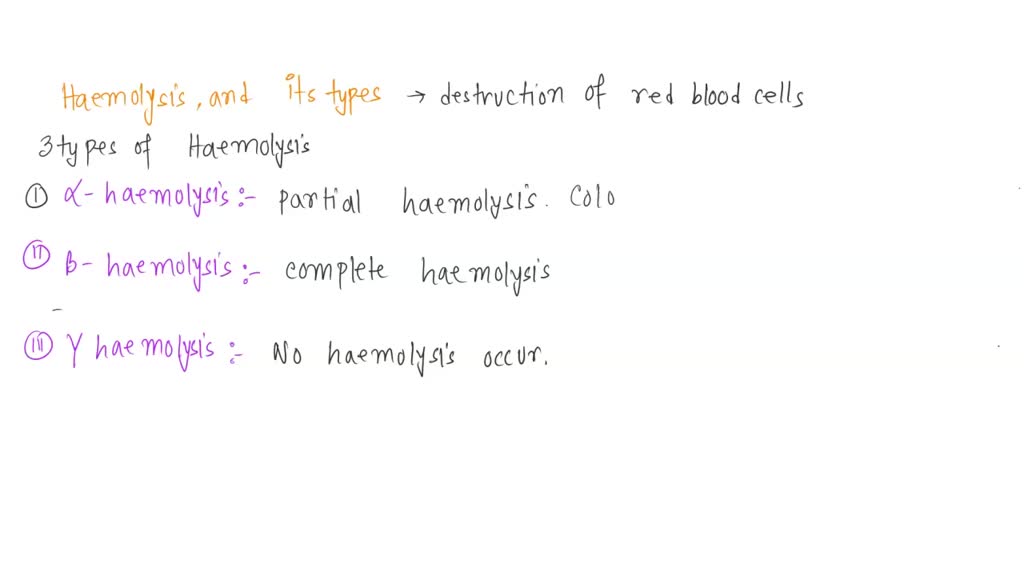 Haemolysis, and its types → destruction of red blood cells
3 types of Haemolysis
① α- haemolysis :- partial haemolysis. Colo
ⓘⓘ β- haemolysis :- complete haemolysis
ⓘⓘⓘ γ haemolysis :- No haemolysis occur.